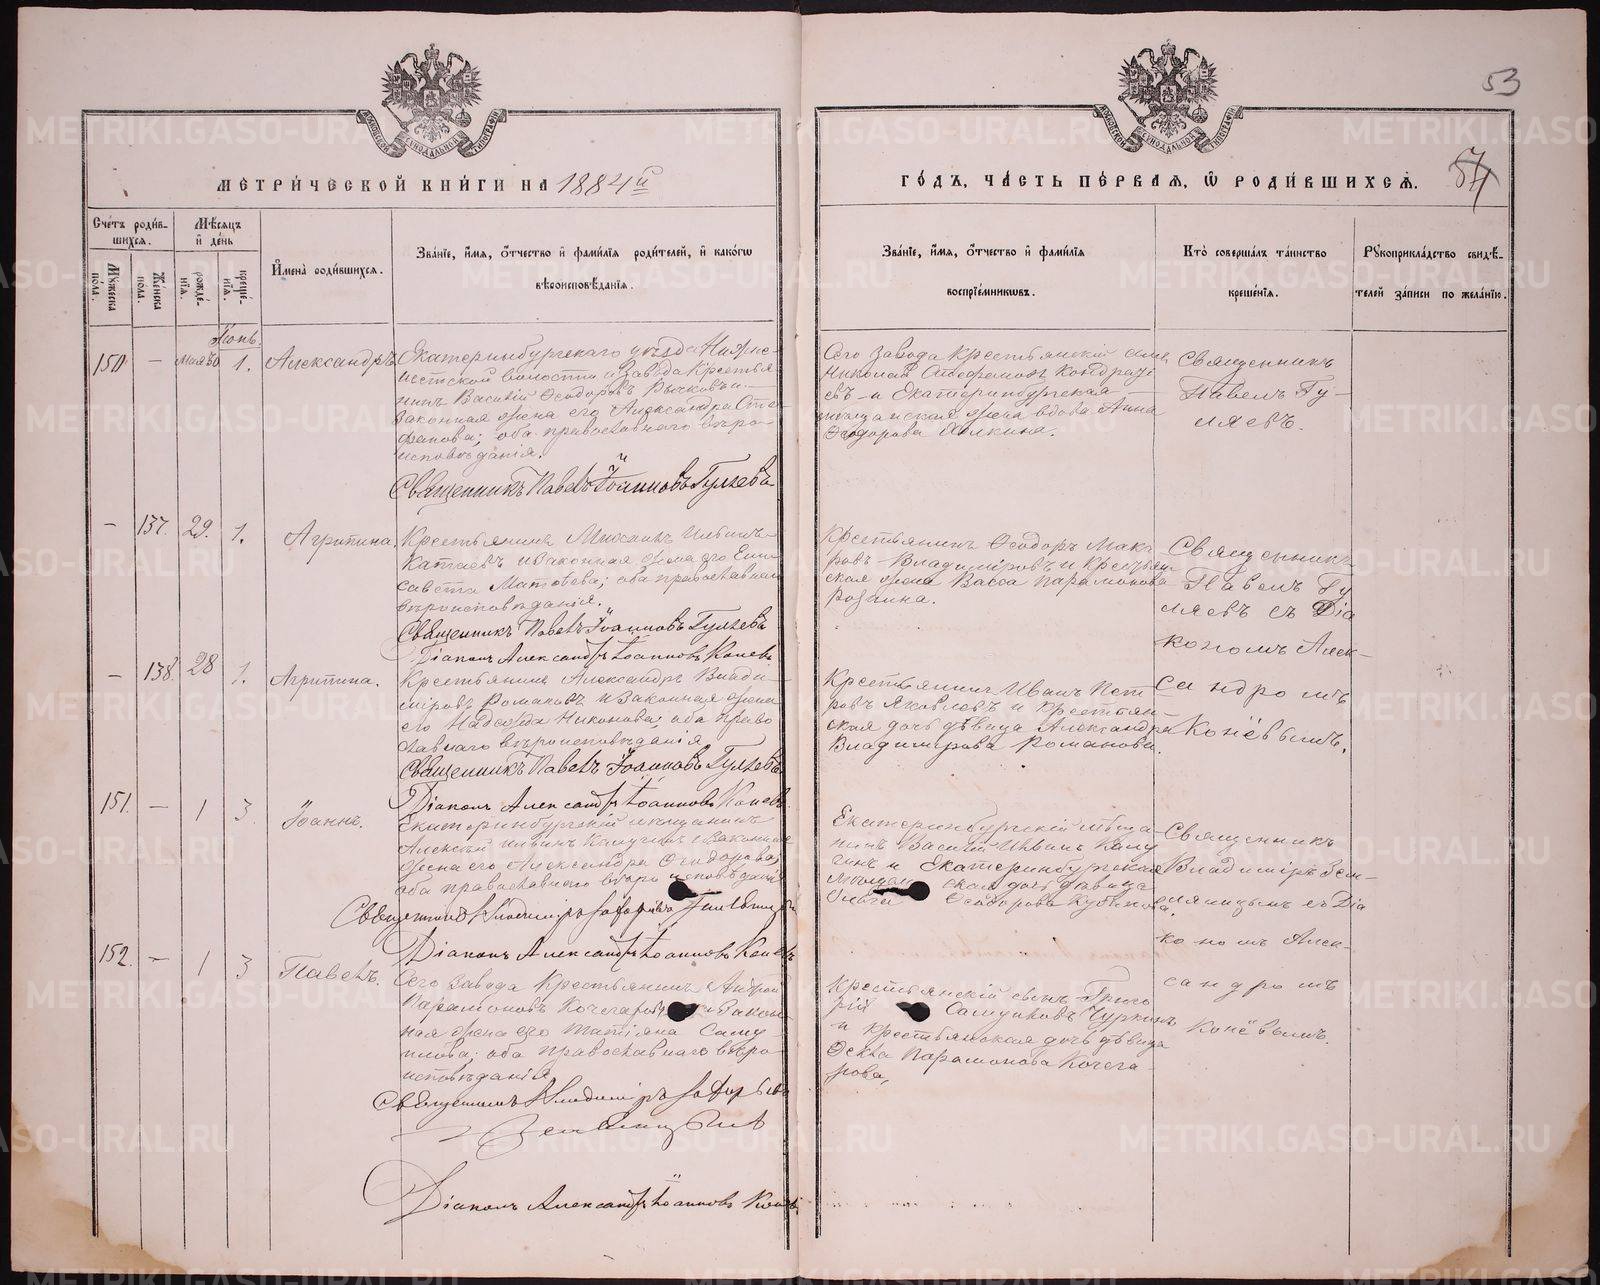 53
57
МЕТРИЧЕСКОЙ КНИГИ НА 1884й
ГОДЪ, ЧАСТЬ ПЕРВАЯ, Ѡ РОДИВШИХСЯ.
Счетъ родив-
шихся.
Мѣсяцъ
и день
Мужеска
пола.
Женска
пола.
рожде-
нія.
креще-
нія.
Имена родившихся.
Званіе, имя, отчество и фамилія родителей, и какогѡ
вѣроисповѣданія.
Званіе, имя, отчество и фамилія
воспріемниковъ.
Кто совершалъ таинство
крещенія.
Рукоприкладство свидѣ-
телей записи по желанію.
Іюнь.
150 — Мая 30 1. Александръ
Екатеринбургскаго уѣзда Нижне-
исетской волости и завода Крестья
нинъ Василій Ѳеодоровъ Рычковъ и
законная жена его Александра Сте
фанова; оба православнаго вѣро
исповѣданія.
Священникъ Павелъ Іоанновъ Гуляевъ
Сего завода Крестьянскій сынъ
Николай Стефановъ Кондрать
евъ и Екатеринбургская
мѣщанская жена вдова Анна
Ѳеодорова
Священникъ
Павелъ Гу-
ляевъ.
— 137. 29. 1. Агрипина.
Крестьянинъ Михаилъ Ильинъ
Катаевъ и законная жена его Ели
савета Матѳеева; оба православнаго
вѣроисповѣданія.
Священникъ Павелъ Іоанновъ Гуляевъ
Діаконъ Александръ Іоанновъ Коневъ
Крестьянинъ Ѳеодоръ Мака
ровъ Владиміровъ и Крестьян
ская жена Васса Парамонова
Священникъ
Павелъ Гу
ляевъ съ Діа
кономъ Алек-
сандромъ
Конёвымъ.
— 138. 28 1. Агрипина.
Крестьянинъ Александръ Влади
міровъ Романовъ и законная жена
его Надежда Никонова; оба право
славнаго вѣроисповѣданія
Священникъ Павелъ Іоанновъ Гуляевъ
Діаконъ Александръ Іоанновъ Коневъ
Крестьянинъ Иванъ Пет
ровъ Яковлевъ и Крестьян-
ская дочь дѣвица Александра
Владимірова Романова.
151. — 1 3 Іоаннъ.
Екатеринбургскій мѣщанинъ
Алексѣй Ивинъ Калугинъ и законная
жена его Александра Ѳеодорова;
оба православнаго вѣроисповѣданія
Священникъ Владиміръ
Діаконъ Александръ Іоанновъ Коневъ
Екатеринбургскій мѣща-
нинъ Василій Ивинъ Калу
гинъ и Екатеринбургская
мѣщанская дочь дѣвица
Ольга Ѳеодорова
Священникъ
Владиміръ Зем-
ляницынъ съ Діа
кономъ Алек-
сандромъ
Конёвымъ.
152. — 1 3 Павелъ.
Сего завода Крестьянинъ Андрей
Парамоновъ Кочегаровъ и закон
ная жена его Татіана Саму
илова; оба православнаго вѣро
исповѣданія
Священникъ Владиміръ
Діаконъ Александръ Іоанновъ Коневъ
Крестьянскій сынъ Григо
рій Самуиловъ Чуркинъ
и крестьянская дочь дѣвица
Ѳекла Парамонова Кочега
рова.
METRIKI.GASO-URAL.RU